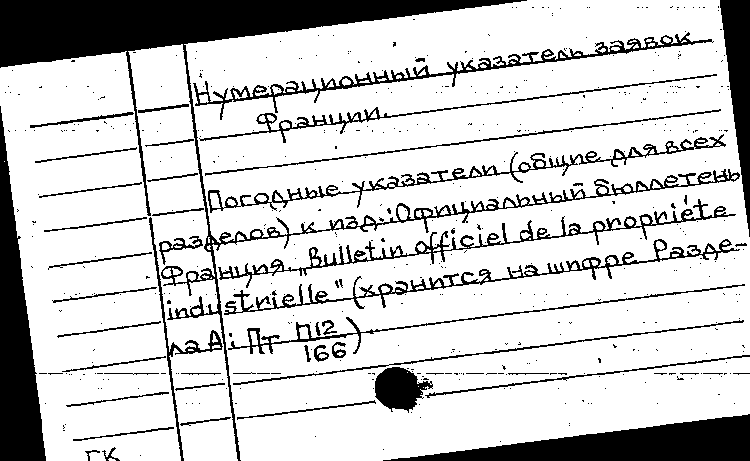 Нумерационный указатель заявок
Франции.
Погодные указатели (общие для всех
разделов) к изд.: Официальный бюллетень
Франция. „Bulletin officiel de la propriéte
industrielle" (хранится на шифре Разде-
ла А: Пт П12/166).
ГК